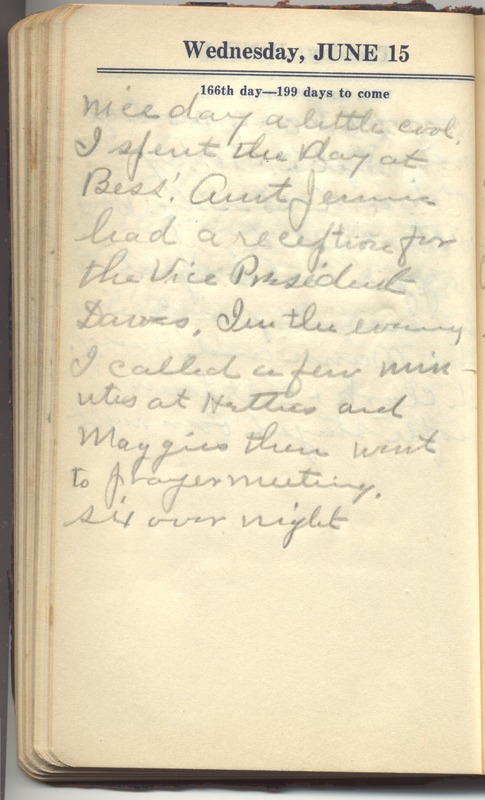 Wednesday, JUNE 15
166th day—199 days to come
nice day a little cool.
I spent the day at
Bess'. Aunt Jennie
had a reception for
the Vice President
Dawes. In the evening
I called a few min-
utes at Hatties and
Maggies then went
to prayer meeting.
six over night